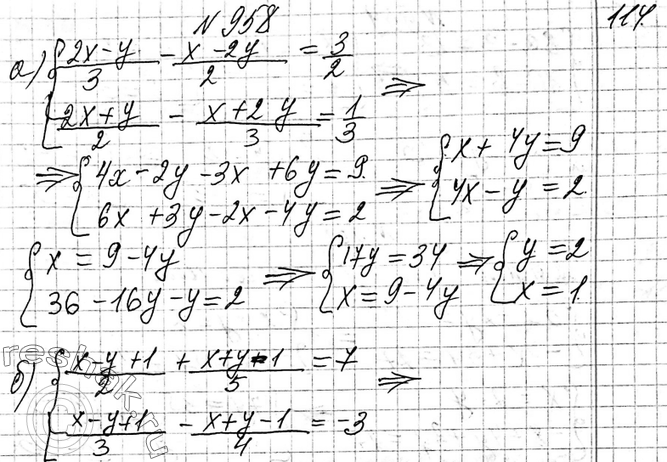 №958
114.
а) { (2x-y)/3 - (x-2y)/2 = 3/2
(2x+y)/2 - (x+2y)/3 = 1/3 ⇒
⇒ { 4x-2y-3x+6y=9
6x+3y-2x-4y=2 ⇒ { x+4y=9
4x-y=2
{ x=9-4y
36-16y-y=2 ⇒ { 17y=34
x=9-4y ⇒ { y=2
x=1
б) { (x-y+1)/2 + (x+y-1)/5 = 7
(x-y+1)/3 - (x+y-1)/4 = -3 ⇒
reshak.ru